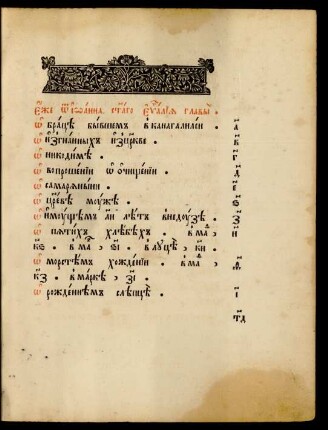 Є҆же ѿ і҆ѡа́нна. ст҃а́го є҆ѵⷢ҇лїѧ главы̀ .
ѡ҆ бра́цѣ бы́вшемъ в кана гали́леи . а҃
ѡ҆ и҆згна́нныхъ и҆зцр҃кве . в҃
ѡ҆ никоди́мѣ . г҃
ѡ҆ вопроше́нїи ѡ҆ ѡ҆чище́нїи . д҃
ѡ҆ самарѧны́ни . є҃
ѡ҆ цр҃е́вѣ мꙋ́жѣ . ѕ҃
ѡ҆ и҆мꙋ́щемъ л҃и лѣ́тъ в недꙋ́зѣ . з҃
ѡ҆ пѧти́хъ хлѣ́бѣхъ . в маⷴ҇, и҃
к҃ѕ . в маⷬ҇, ѕ҃і . в лꙋцѣ̀, к҃и .
ѡ҆ морсте́мъ хожде́нїи . в маⷴ҇, ѳ҃
к҃з . в ма́ркѣ, з҃і .
ѡ҆ рожде́ннѣмъ слѣпцѣ̀ . і҃